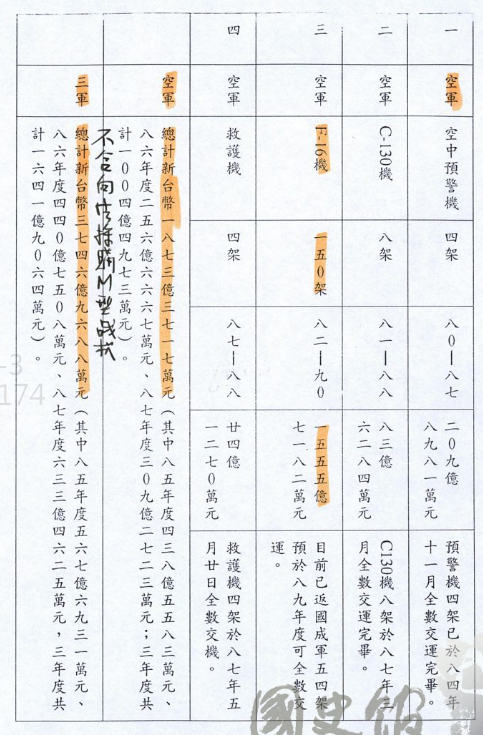 一
空軍
空中預警機
四架
八0—八七
二0九億
八九八一萬元
預警機四架已於八四年
十一月全數交運完畢。
二
空軍
C-130機
八架
八一—八八
八三億
六二八四萬元
C130機八架於八七年三
月全數交運完畢。
三
空軍
F-16機
一五0架
八二—九0
一五五五億
七一八二萬元
目前已返國成軍五四架
預於八九年度可全數交
運。
四
空軍
救護機
四架
八七—八八
廿四億
一二七0萬元
救護機四架於八七年五
月廿日全數交機。
空軍
總計新台幣一八七三億三七一七萬元（其中八五年度四三八億五五八三萬元、
八六年度二五六億六六六七萬元、八七年度三0九億二七二三萬元；三年度共
計一00四億四九七三萬元）。
不含向法採購M型戰机
三軍
總計新台幣三七四六億九六八八萬元（其中八五年度五六七億六九三一萬元、
八六年度四四0億七五0八萬元、八七年度六三三億四六二五萬元，三年度共
計一六四一億九0六四萬元）。
-3
174
國史館